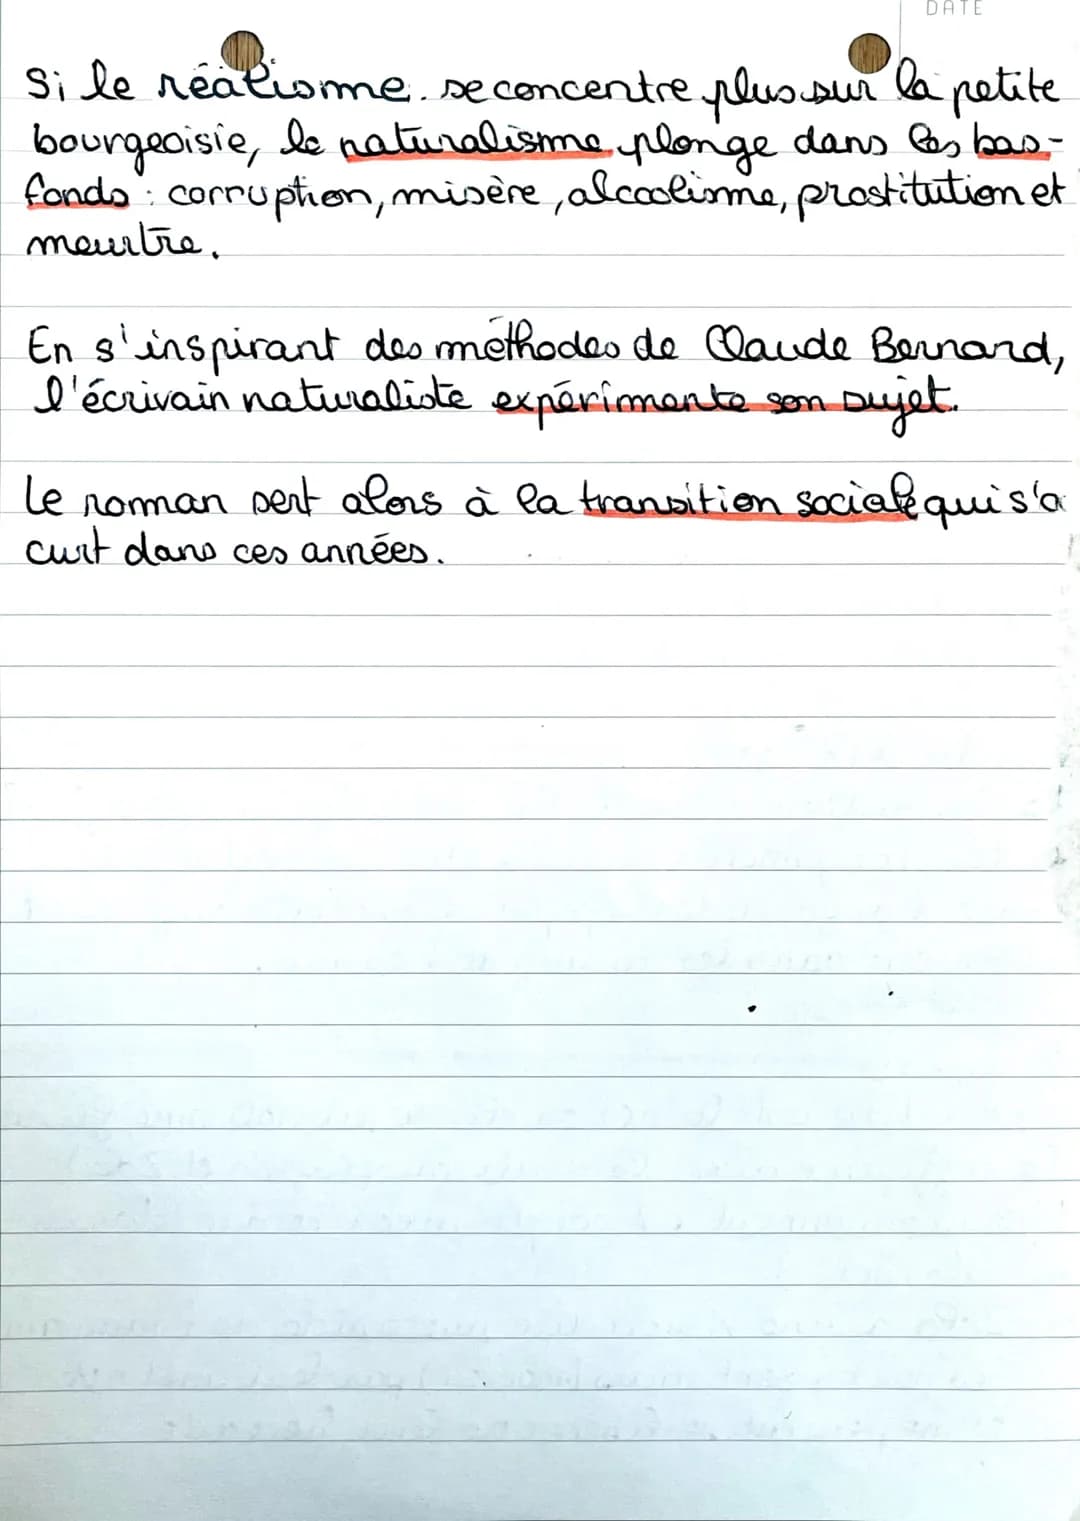 DATE
Si le réalisme se concentre plus sur la petite
bourgeoisie, le naturalisme plonge dans les bas-
fonds : corruption, misère, alcoolisme, prostitution et
meurtre.
En s'inspirant des méthodes de Claude Bernard,
l'écrivain naturaliste expérimente son sujet.
Le roman sert alors à la transition sociale qui s'a
curt dans ces années.